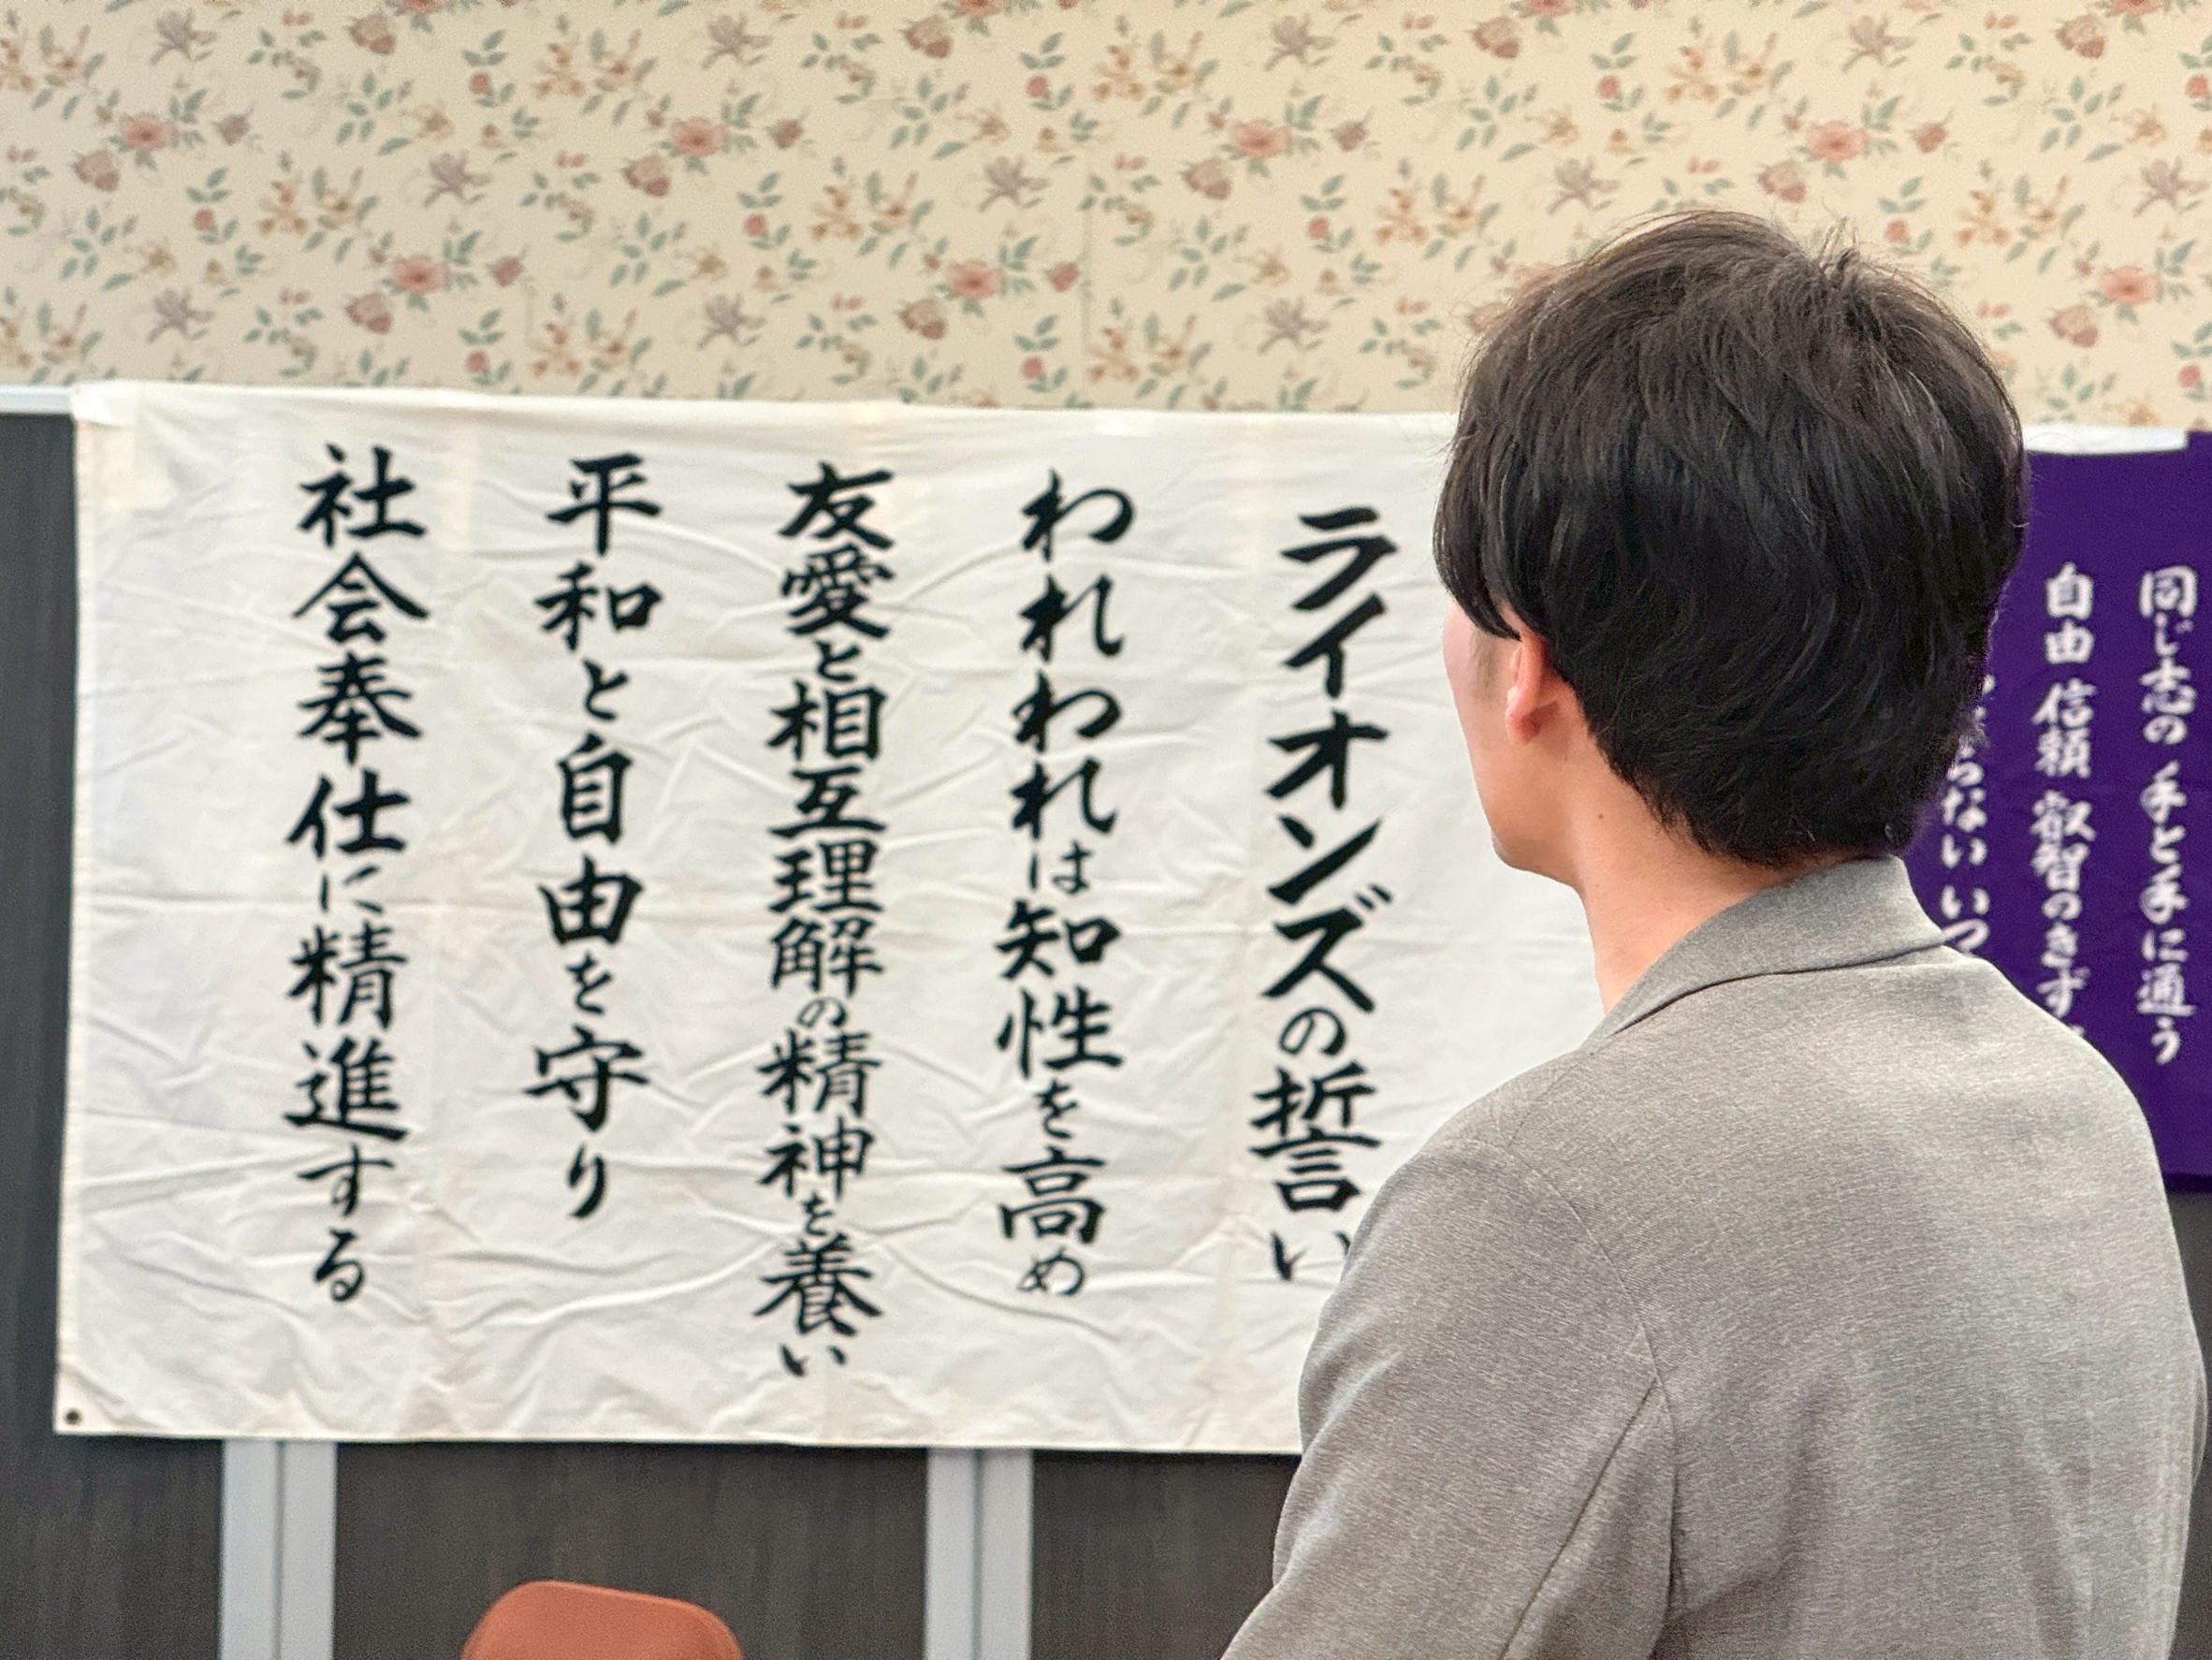 同じ志の 手と手に通う
自由 信頼 叡智のきず
らない いつ
ライオンズの誓い
われわれは知性を高め
友愛と相互理解の精神を養い
平和と自由を守り
社会奉仕に精進する